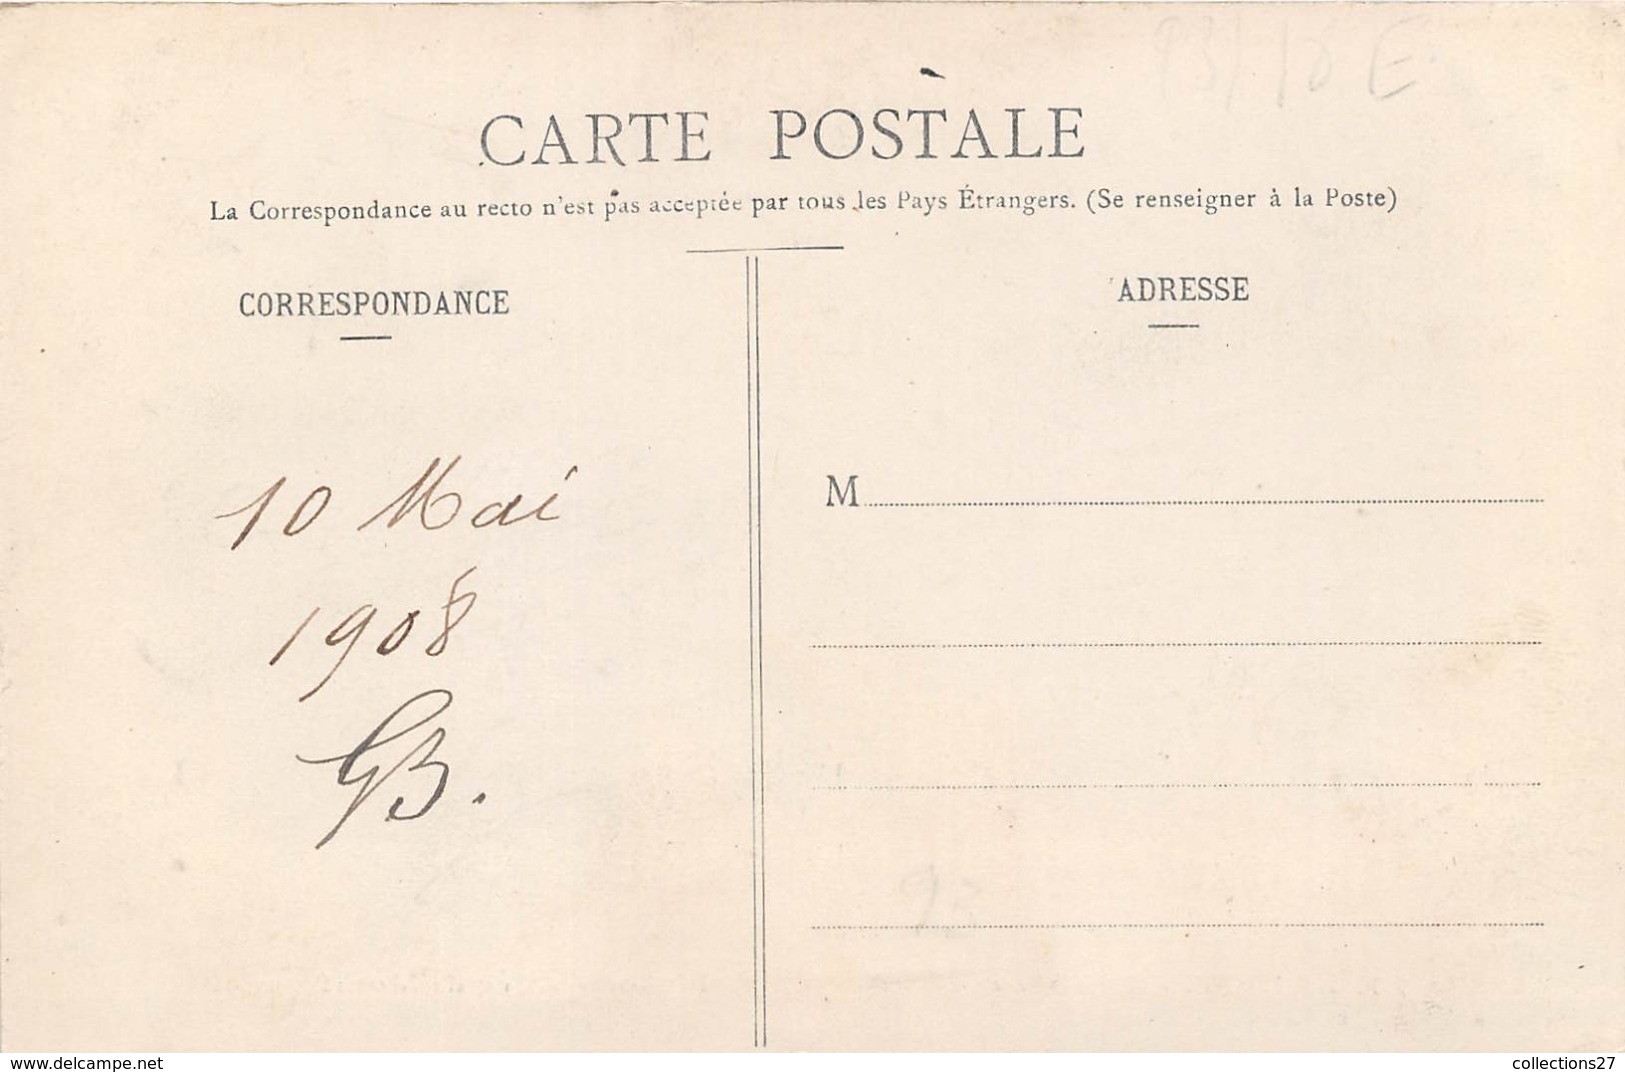 CARTE POSTALE
La Correspondance au recto n'est pas acceptée par tous les Pays Étrangers. (Se renseigner à la Poste)
CORRESPONDANCE
ADRESSE
10 Mai
1908
GB.
M
www.delcampe.net
collections27